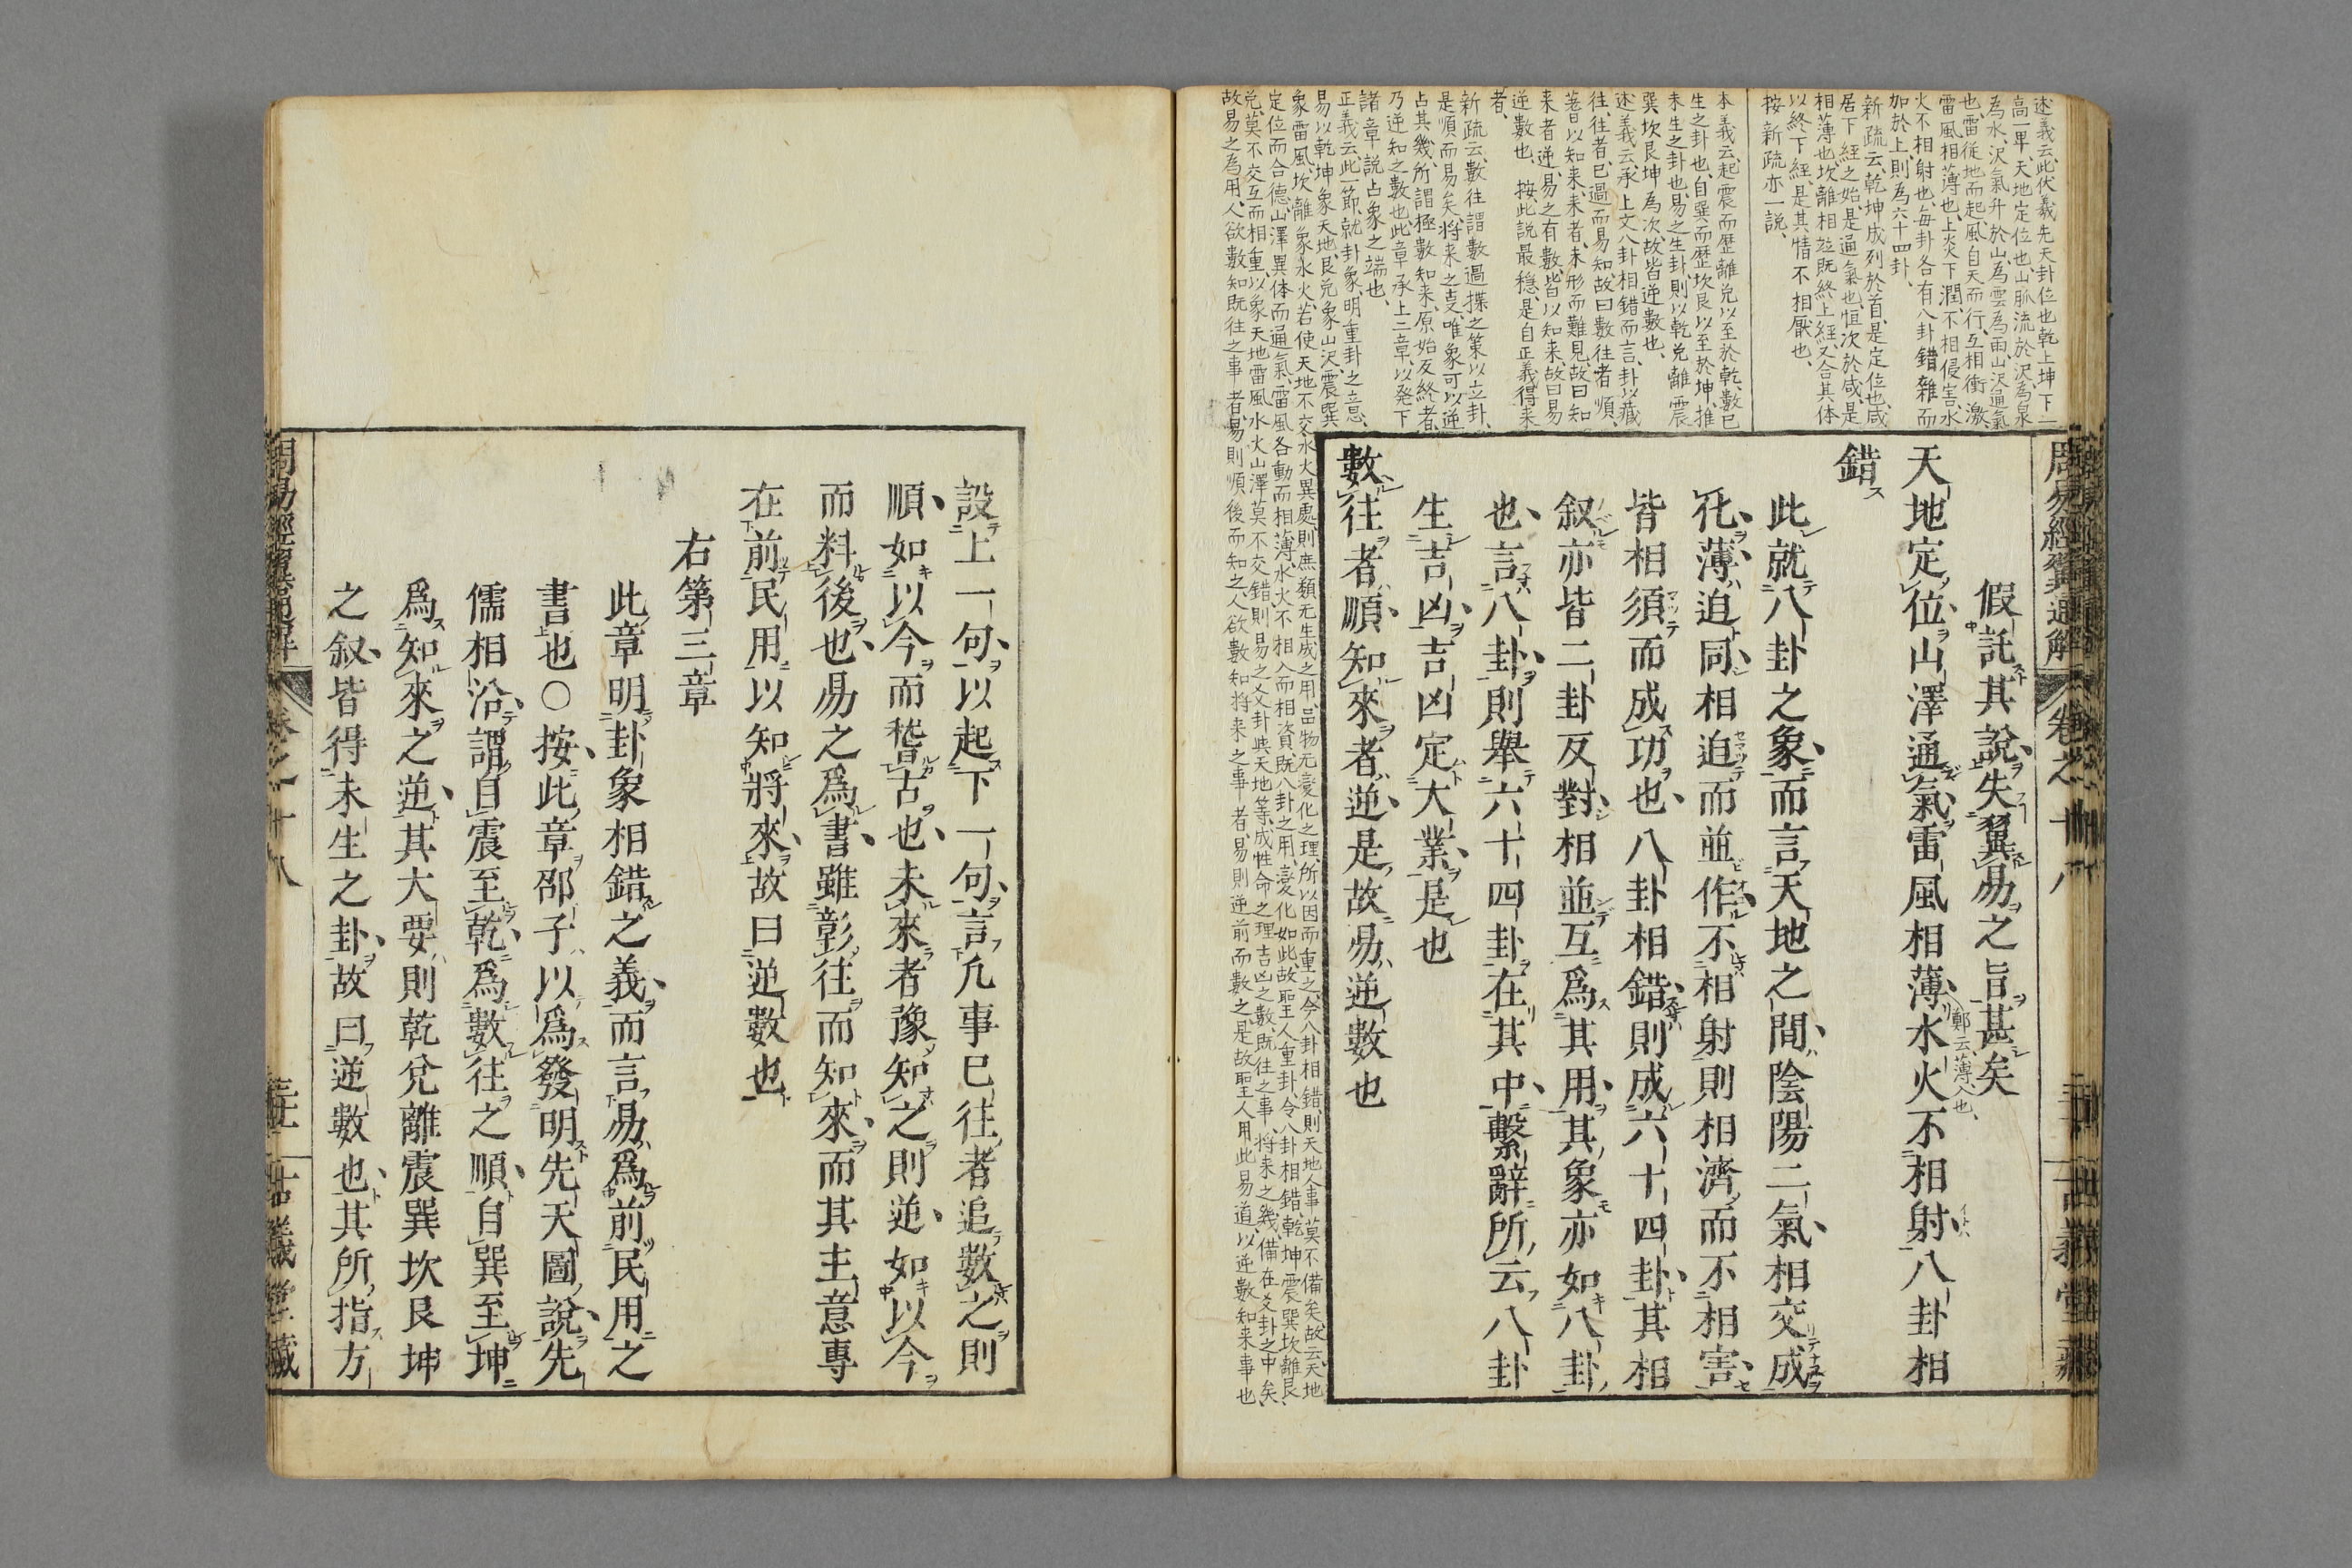 述義云此伏羲先天卦位也乾上坤下一
高一卑天地定位也山脈流於沢為泉
為水沢氣升於山為雲為雨山沢通氣
也雷從地而起風自天而行互相衝激
雷風相薄也上炎下潤不相侵害水
火不相射也每卦各有八卦錯雜而
加於上則為六十四卦
新疏云乾坤成列於首是定位也咸
居下經之始是通氣也恒次於咸是
相薄也坎離相並既終上經又合其体
以終下經是其情不相厭也
按新疏亦一説
本義云起震而歷離兌以至於乾數已
生之卦也自巽而歷坎艮以至於坤推
未生之卦也易之生卦則以乾兌離震
巽坎艮坤為次故皆逆數也
述義云承上文八卦相錯而言卦以藏
往往者已過而易知故曰數往者順
蓍以知来来者未形而難見故曰知
来者逆易之有數皆以知来故曰易
逆數也 按此説最穏是自正義得来
者
新疏云數往謂數過揲之策以立卦
是順而易矣将来之吏唯象可以逆
占其幾所謂極數知来原始反終者
乃逆知之數也此章承上二章以発下
諸章説占象之端也
正義云此一節就卦象明重卦之意
易以乾坤象天地艮兌象山沢震巽
象雷風坎離象水火若使天地不交水火異處則庶類无生成之用品物无變化之理所以因而重之今八卦相錯則天地人事莫不備矣故云天地
定位而合德山澤異体而通氣雷風各動而相薄水火不相入而相資既八卦之用變化如此故聖人重卦令八卦相錯乾坤震巽坎離艮
兌莫不交互而相重以象天地雷風水火山澤莫不交錯則易之爻卦與天地等成性命之理吉凶之數既往之事将来之幾備在爻卦之中矣
故易之為用人欲數知既往之事者易則順後而知之人欲數知将来之事者易則逆前而數之是故聖人用此易道以逆數知来事也
假託其說失翼易之旨甚矣
天地定位山澤通氣雷風相薄水火不相射八卦相
鄭云薄入也
錯
此就八卦之象而言天地之間陰陽二氣相交成
化薄迫同相迫而並作不相射則相濟而不相害
皆相須而成功也八卦相錯則成六十四卦其相
叙亦皆二卦反對相並互爲其用其象亦如八卦
也言八卦則舉六十四卦在其中繫辭所云八卦
生吉凶吉凶定大業是也
數往者順知來者逆是故易逆數也
設上一句以起下一句言凡事已往者追數之則
順如以今而稽古也未來者豫知之則逆如以今
而料後也易之爲書雖彰往而知來而其主意專
在前民用以知將來故曰逆數也
右第三章
此章明卦象相錯之義而言易爲前民用之
書也○按此章邵子以爲發明先天圖說先
儒相沿謂自震至乾爲數往之順自巽至坤
爲知來之逆其大要則乾兌離震巽坎艮坤
之叙皆得未生之卦故曰逆數也其所指方
周易經翼通解 卷之十八 古義堂藏